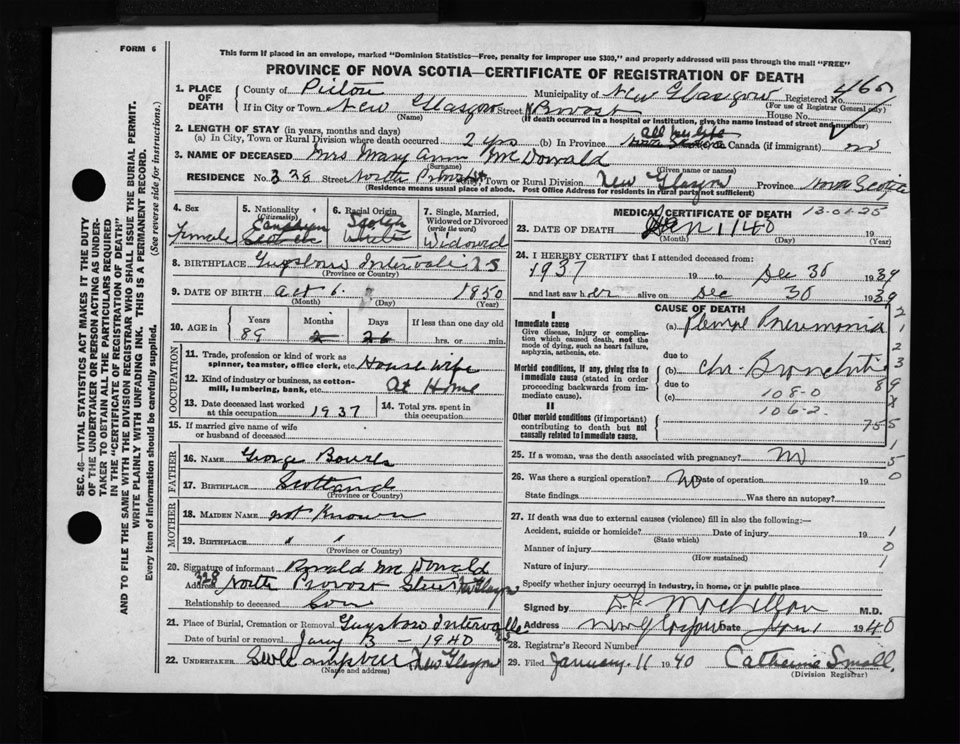 FORM 6
This form if placed in an envelope, marked "Dominion Statistics—Free, penalty for improper use $300," and properly addressed will pass through the mail "FREE"
PROVINCE OF NOVA SCOTIA—CERTIFICATE OF REGISTRATION OF DEATH
SEC. 46—VITAL STATISTICS ACT MAKES IT THE DUTY
OF THE UNDERTAKER OR PERSON ACTING AS UNDER-
TAKER TO OBTAIN ALL THE PARTICULARS REQUIRED
IN THE "CERTIFICATE OF REGISTRATION OF DEATH"
AND TO FILE THE SAME WITH THE DIVISION REGISTRAR WHO SHALL ISSUE THE BURIAL PERMIT.
WRITE PLAINLY WITH UNFADING INK. THIS IS A PERMANENT RECORD.
Every item of information should be carefully supplied. (See reverse side for instructions.)
1. PLACE OF DEATH County of Pictou Municipality of New Glasgow Registered No. 465
(For use of Registrar General only)
If in City or Town New Glasgow Street N Provost House No.
(Name) (If death occurred in a hospital or institution, give the name instead of street and number)
2. LENGTH OF STAY (in years, months and days) all her life
(a) In City, Town or Rural Division where death occurred 2 yrs (b) In Province Canada (if immigrant)
3. NAME OF DECEASED Mrs Mary Ann McDonald
(Surname) (Given name or names)
RESIDENCE No. 328 Street North Provost City, Town or Rural Division New Glasgow Province Nova Scotia
(Residence means usual place of abode. Post Office Address for residents in rural parts not sufficient)
4. Sex Female
5. Nationality (Citizenship) Canadian Scotch
6. Racial Origin Scotch White
7. Single, Married, Widowed or Divorced (write the word) Widowed
8. BIRTHPLACE Guysboro Intervale NS
(Province or Country)
9. DATE OF BIRTH Oct 6 1850
(Month) (Day) (Year)
10. AGE in Years Months Days If less than one day old
89 2 26 hrs. or min.
OCCUPATION
11. Trade, profession or kind of work as spinner, teamster, office clerk, etc. House wife
12. Kind of industry or business, as cotton-mill, lumbering, bank, etc. At Home
13. Date deceased last worked at this occupation 1937
14. Total yrs. spent in this occupation
15. If married give name of wife or husband of deceased
FATHER
16. Name George Bowles
17. Birthplace Scotland
(Province or Country)
MOTHER
18. Maiden Name not Known
19. Birthplace " "
(Province or Country)
20. Signature of informant Ronald McDonald
Address 328 North Provost Street New Glasgow
Relationship to deceased Son
21. Place of Burial, Cremation or Removal Guysboro Intervale NS
Date of burial or removal Jany 13 - 1940
22. UNDERTAKER New Glasgow
(Name and address)
MEDICAL CERTIFICATE OF DEATH 13-01-25
23. DATE OF DEATH Jan 1 1940 19
(Month) (Day) (Year)
24. I HEREBY CERTIFY that I attended deceased from:
1937 19 to Dec 30 1939
and last saw her alive on Dec 30 1939
CAUSE OF DEATH
I
Immediate cause
Give disease, injury or complication which caused death, not the mode of dying, such as heart failure, asphyxia, asthenia, etc.
(a) Pneumonia
due to
Morbid conditions, if any, giving rise to immediate cause (stated in order proceeding backwards from immediate cause).
(b) Chr. Bronchitis
due to
(c) 108-0
106-2
II
Other morbid conditions (if important) contributing to death but not causally related to immediate cause.
755
25. If a woman, was the death associated with pregnancy? no
26. Was there a surgical operation? No Date of operation 19
State findings Was there an autopsy?
27. If death was due to external causes (violence) fill in also the following:—
Accident, suicide or homicide? Date of injury 19
(State which)
Manner of injury
(How sustained)
Nature of injury
Specify whether injury occurred in industry, in home, or in public place
Signed by M.D.
Address New Glasgow Date Jan 1 1940
28. Registrar's Record Number
29. Filed January 11 1940 Catherine Small
(Division Registrar)